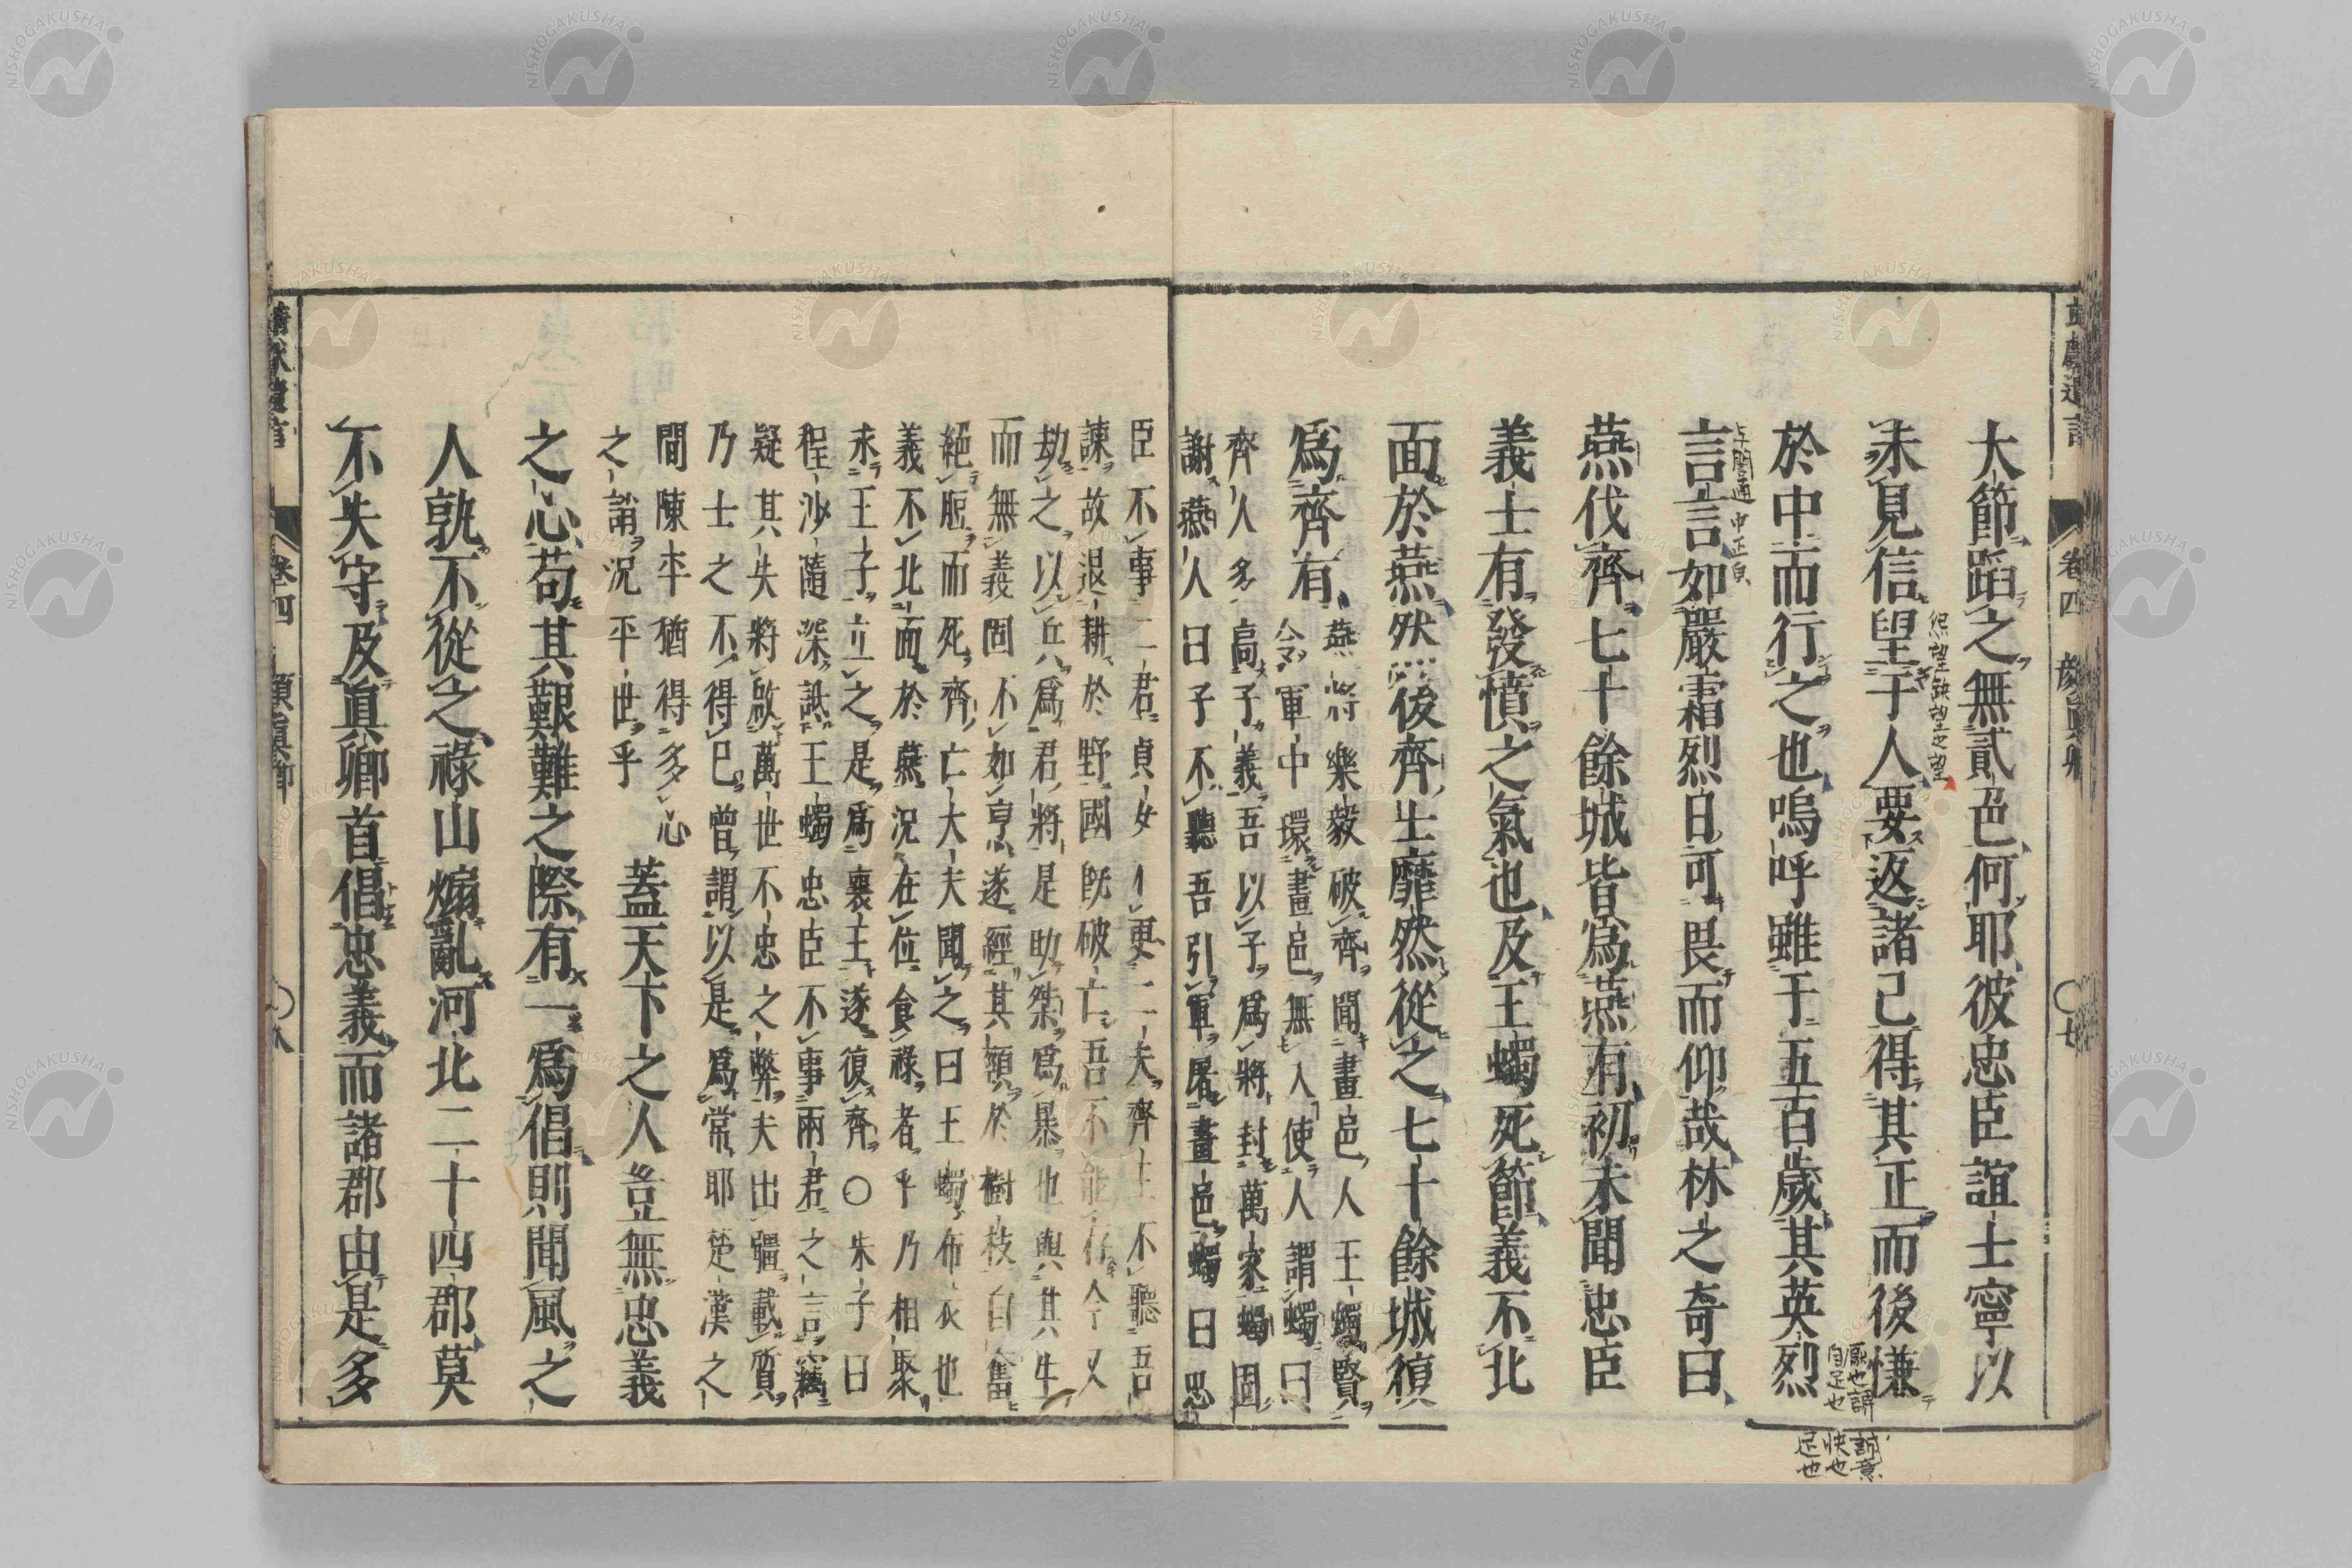 靖獻遺言
卷四
顏眞卿
〇七
大節蹈之無貳色何耶彼忠臣誼士寧以
未見信望于人要返諸己得其正而後慊
怨望缺望之望
於中而行之也嗚呼雖千五百歲其英烈
言言如嚴霜烈日可畏而仰哉林之奇曰
與誾通中正皃
燕伐齊七十餘城皆爲燕有初未聞忠臣
義士有發憤之氣也及王蠋死節義不北
面於燕然後齊士靡然從之七十餘城復
爲齊有
燕將樂毅破齊聞畫邑人王蠋賢
令軍中環畫邑無入使人謂蠋曰
齊人多高子義吾以子爲將封萬家蠋固
謝燕人曰子不聽吾引軍屠畫邑蠋曰忠
臣不事二君貞女不更二夫齊王不聽吾
諫故退耕於野國既破亡吾不能存今又
劫之以兵爲君將是助桀爲暴也與其生
而無義固不如烹遂經其頸於樹枝自奮
絕脰而死齊亡大夫聞之曰王蠋布衣也
義不北面於燕況在位食祿者乎乃相聚
求王子立之是爲襄王遂復齊〇朱子曰
程沙隨深詆王蠋忠臣不事兩君之言竊
疑其失將啟萬世不忠之弊夫出疆載質
乃士之不得已曾謂以是爲常耶楚漢之
間陳平猶得多心
之誚況平世乎
蓋天下之人豈無忠義
之心苟其艱難之際有一爲倡則聞風之
人孰不從之祿山煽亂河北二十四郡莫
不失守及眞卿首倡忠義而諸郡由是多
誠意
快也
足也
靖獻遺言
卷四
顏眞卿
〇八